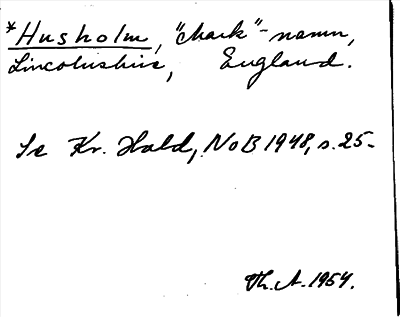 *Husholm, "mark"-namn,
Lincolnshire, England.
Se Kr. Hald, NoB 1948, s. 25-
Th. A. 1954.